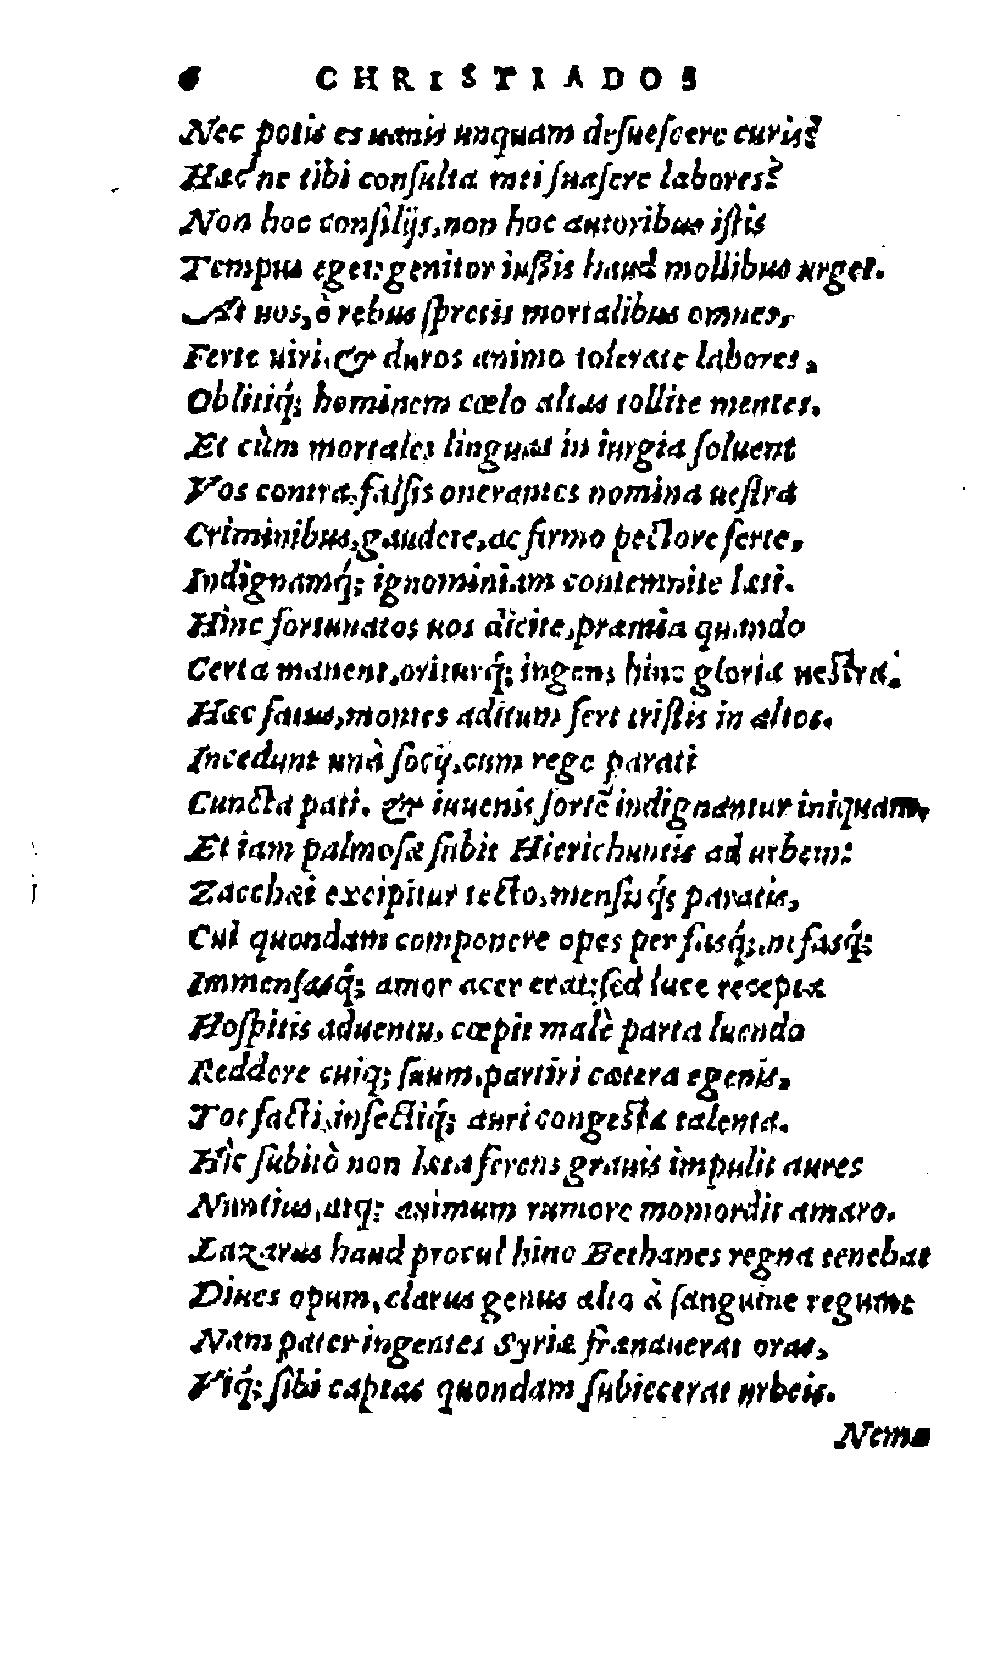 6 CHRISTIADOS
Nec potis es uanis unquam desuescere curis?
Hæc'ne tibi consulta mei suasere labores?
Non hoc consilijs, non hoc autoribus istis
Tempus eget: genitor iussis haud mollibus urget.
At uos, ò rebus spretis mortalibus omnes,
Ferte uiri, & duros animo tolerate labores,
Obliti[que]; hominem cœlo altas tollite mentes.
Et cùm mortales linguas in iurgia soluent
Vos contra, falsis onerantes nomina uestra
Criminibus, gaudete, ac firmo pectore ferte,
Indignamq́; ignominiam contemnite læti.
Hinc fortunatos uos dicite, præmia quando
Certa manent, oriturq́; ingens hinc gloria uestra.
Hæc fatus, montes aditum fert tristis in altos.
Incedunt unà socij, cum rege parati
Cuncta pati. & iuuenis sortẽ indignantur iniquam,
Et iam palmosæ subit Hierichuntis ad urbem:
Zacchæi excipitur tecto, mensisq́; paratis,
Cui quondam componere opes per fasq́;, nefasq́;
Immensasq́; amor acer erat: sed luce receptæ
Hospitis aduentu, cœpit malè parta luendo
Reddere cuiq; suum, partiri cætera egenis,
Tot facti, infectiq́; auri congesta talenta.
Hîc subitò non læta ferens grauis impulit aures
Nuntius, atq; animum rumore momordit amaro.
Lazarus haud procul hinc Bethanes regna tenebat
Diues opum, clarus genus alto à sanguine regum:
Nam pater ingentes Syriæ frænauerat oras,
Viq́; sibi captas quondam subiecerat urbeis.
Nemo